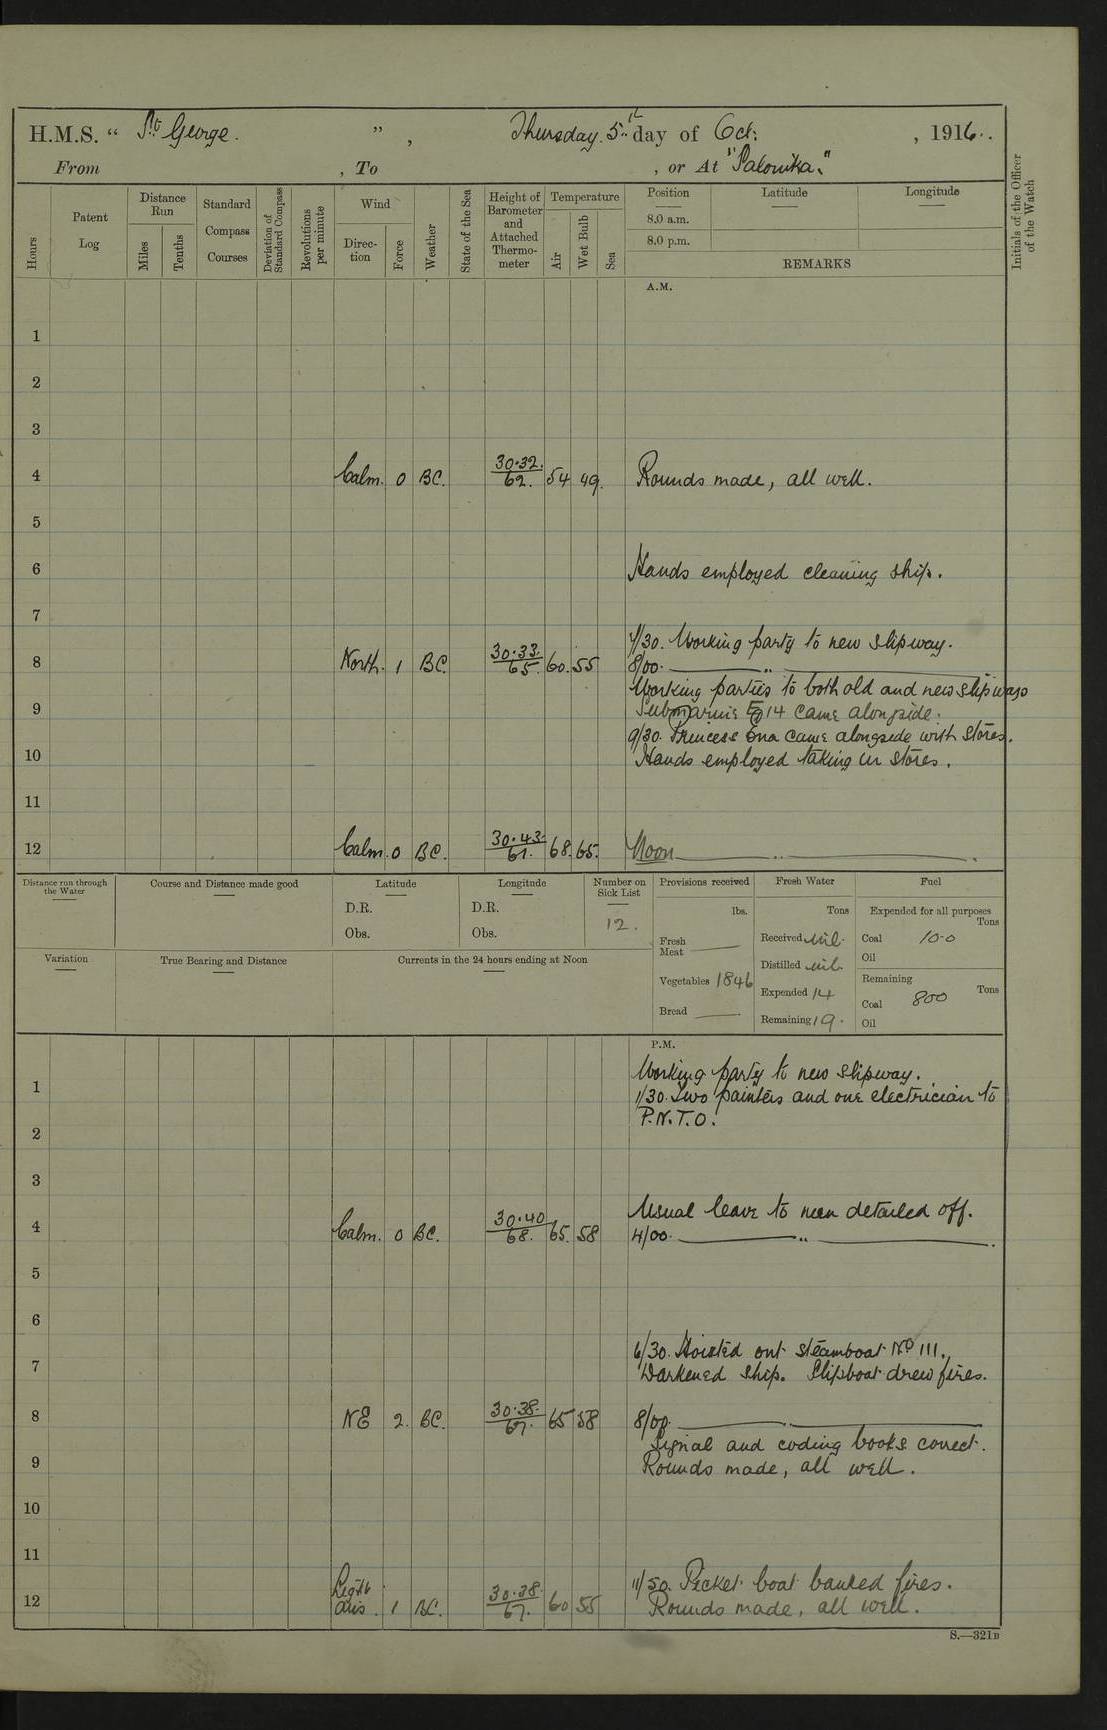 H.M.S. “ St George. ” , Thursday. 5th day of Oct: , 1916.
From , To , or At "Salonika."
Hours
Patent Log
Distance Run
Miles
Tenths
Standard Compass Courses
Deviation of Standard Compass
Revolutions per minute
Wind
Direc-tion
Force
Weather
State of the Sea
Height of Barometer and Attached Thermo-meter
Temperature
Air
Wet Bulb
Sea
Position Latitude Longitude
8.0 a.m.
8.0 p.m.
REMARKS
Initials of the Officer of the Watch
A.M.
1
2
3
4 Calm. 0 BC. 30.32. 62. 54 49. Rounds made, all well.
5
6 Hands employed cleaning ship.
7
7/30. Working party to new slipway.
8 North. 1 BC. 30.33. 65. 60. 55 8/00. "
Working parties to both old and new slipways
9 Submarine E 14 came alongside.
9/30. Princess Ena came alongside with stores.
10 Hands employed taking in stores.
11
12 Calm. 0 BC. 30.43. 61. 68. 65. Noon "
Distance run through the Water
Course and Distance made good
Latitude
D.R.
Obs.
Longitude
D.R.
Obs.
Number on Sick List
12.
Provisions received
lbs.
Fresh Meat
Vegetables 1846
Bread
Fresh Water
Tons
Received nil.
Distilled nil.
Expended 14
Remaining 19.
Fuel
Expended for all purposes
Tons
Coal 10.0
Oil
Remaining
Tons
Coal 800
Oil
Variation
True Bearing and Distance
Currents in the 24 hours ending at Noon
P.M.
Working party to new slipway.
1 1/30. Two painters and one electrician to
P.N.T.O.
2
3
Usual leave to men detailed off.
4 Calm. 0 BC. 30.40 68. 65. 58 4/00. "
5
6
6/30. Hoisted out steamboat No 111.
7 Darkened ship. Slipboat drew fires.
8 NE 2. BC. 30.38. 67. 65 58 8/00.
Signal and coding books correct.
9 Rounds made, all well.
10
11
11/50. Picket boat banked fires.
12 Light airs. 1 BC. 30.38. 67. 60 55 Rounds made, all well.
S.—321B